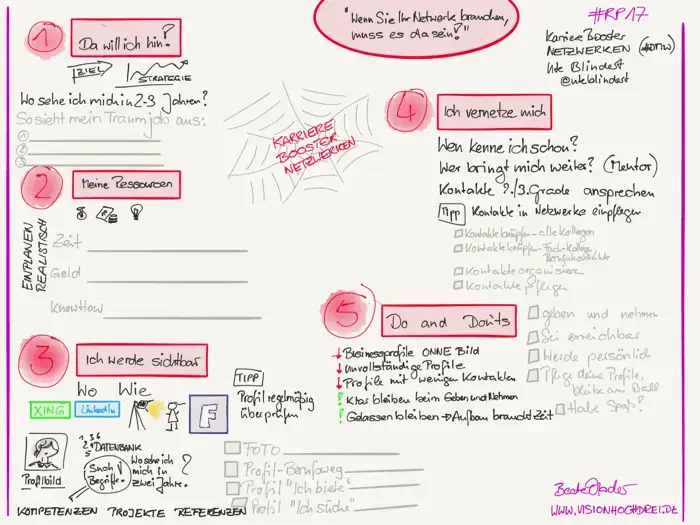 "Wenn Sie Ihr Netzwerk brauchen,
muss es da sein!"
#RP17
Karriere Booster
NETZWERKEN
Ute Blindert
@uteblindert
KARRIERE
BOOSTER
NETZWERKEN
1
Da will ich hin!
ZIEL
STRATEGIE
Wo sehe ich mich in 2-3 Jahren?
So sieht mein Traumjob aus:
1
2
3
2
Meine Ressourcen
EINPLANEN
REALISTISCH
Zeit
Geld
KnowHow
3
Ich werde sichtbar
Wo Wie
XING
LinkedIn
F
TIPP
Profil regelmäßig
überprüfen
Profilbild
DATENBANK
Such
Begriffe
Wo sehe ich
mich in
zwei Jahre?
KOMPETENZEN PROJEKTE REFERENZEN
FOTO
Profil-Berufsweg
Profil "Ich biete"
Profil "Ich suche"
4
Ich vernetze mich
Wen kenne ich schon?
Wer bringt mich weiter? (Mentor)
Kontakte 2./3. Grade ansprechen
TIPP Kontakte in Netzwerke einpflegen
Kontakte knüpfen - alle Kollegen
Kontakte knüpfen -
Kontakte organisieren
Kontakte pflegen
5
Do and Don'ts
Businessprofile OHNE Bild
Unvollständige Profile
Profile mit wenigen Kontakten
Klar bleiben beim Geben und Nehmen
Gelassen bleiben → Aufbau braucht Zeit
geben und nehmen
Sei erreichbar
Werde persönlich
Pflege deine Profile,
bleibe am Ball
Habe Spaß!
WWW.VISIONHOCHDREI.DE